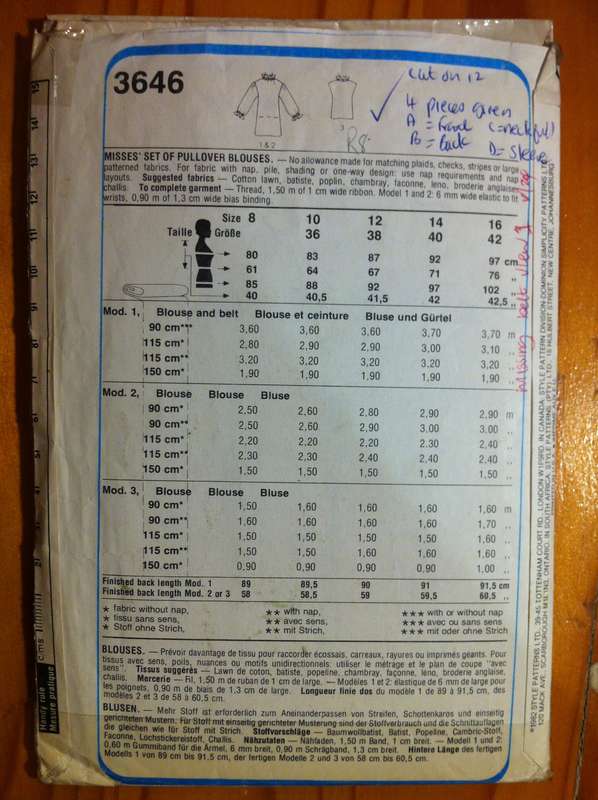 3646
cut on 12
4 pieces given
A = Front C = neck full
B = Back D = Sleeve
1 & 2
3
R8-
MISSES' SET OF PULLOVER BLOUSES. — No allowance made for matching plaids, checks, stripes or large
patterned fabrics. For fabric with nap, pile, shading or one-way design: use nap requirements and nap
layouts. Suggested fabrics – Cotton lawn, batiste, poplin, chambray, faconne, leno, broderie anglaise,
challis. To complete garment — Thread, 1,50 m of 1 cm wide ribbon. Model 1 and 2: 6 mm wide elastic to fit
wrists, 0,90 m of 1,3 cm wide bias binding.
Size 8 10 12 14 16
Taille Größe 36 38 40 42
80 83 87 92 97 cm
61 64 67 71 76 ,,
85 88 92 97 102 ,,
40 40,5 41,5 42 42,5 ,,
Mod. 1, Blouse and belt Blouse et ceinture Bluse und Gürtel
90 cm*** 3,60 3,60 3,60 3,70 3,70 m
115 cm* 2,80 2,90 2,90 3,00 3,10 ,,
115 cm** 3,20 3,20 3,20 3,20 3,20 ,,
150 cm* 1,90 1,90 1,90 1,90 1,90 ,,
Mod. 2, Blouse Blouse Bluse
90 cm* 2,50 2,60 2,80 2,90 2,90 m
90 cm** 2,50 2,60 2,90 3,00 3,00 ,,
115 cm* 2,20 2,20 2,20 2,30 2,40 ,,
115 cm** 2,30 2,30 2,40 2,40 2,40 ,,
150 cm* 1,50 1,50 1,50 1,50 1,50 ,,
Mod. 3, Blouse Blouse Bluse
90 cm* 1,50 1,60 1,60 1,60 1,60 m
90 cm** 1,60 1,60 1,60 1,60 1,70 ,,
115 cm* 1,50 1,50 1,50 1,50 1,60 ,,
115 cm** 1,50 1,50 1,60 1,60 1,60 ,,
150 cm* 0,90 0,90 0,90 0,90 1,00 ,,
Finished back length Mod. 1 89 89,5 90 91 91,5 cm
Finished back length Mod. 2 or 3 58 58,5 59 59,5 60,5 ,,
* fabric without nap, ** with nap, *** with or without nap
* tissu sans sens, ** avec sens, *** avec ou sans sens
* Stoff ohne Strich, ** mit Strich, *** mit oder ohne Strich
BLOUSES. — Prévoir davantage de tissu pour raccorder écossais, carreaux, rayures ou imprimés géants. Pour
tissus avec sens, poils, nuances ou motifs unidirectionnels: utiliser le métrage et le plan de coupe "avec
sens". Tissus suggérés – Lawn de coton, batiste, popeline, chambray, façonne, leno, broderie anglaise,
challis. Mercerie – Fil, 1,50 m de ruban de 1 cm de large. — Modèles 1 et 2: élastique de 6 mm de large pour
les poignets, 0,90 m de biais de 1,3 cm de large. Longueur finie dos du modèle 1 de 89 à 91,5 cm, des
modèles 2 et 3 de 58 à 60.5 cm.
BLUSEN. — Mehr Stoff ist erforderlich zum Aneinanderpassen von Streifen, Schottenkaros und einseitig
gerichteten Mustern. Für Stoff mit einseitig gerichteter Musterung sind der Stoffverbrauch und die Schnittauflagen
die gleichen wie für Stoff mit Strich. Stoffvorschläge – Baumwollbatist, Batist, Popeline, Cambric-Stoff,
Faconne, Lochstickereistoff, Challis. Nähzutaten – Nähfaden, 1,50 m Band, 1 cm breit. – Modell 1 und 2:
0,60 m Gummiband für die Ärmel, 6 mm breit, 0,90 m Schrägband, 1,3 cm breit. Hintere Länge des fertigen
Modells 1 von 89 cm bis 91,5 cm, der fertigen Modelle 2 und 3 von 58 cm bis 60,5 cm.
missing belt view 1
*1982 STYLE PATTERNS LTD., 39-45 TOTTENHAM COURT RD., LONDON W1P9RD. IN CANADA: STYLE PATTERN DIVISION-DOMINION SIMPLICITY PATTERNS LTD.
120 MACK AVE., SCARBOROUGH M1L1N3, ONTARIO. IN SOUTH AFRICA: STYLE PATTERNS (PTY) LTD., 18 HULBERT STREET, NEW CENTRE, JOHANNESBURG
Handy rule
Mesure pratique
cms